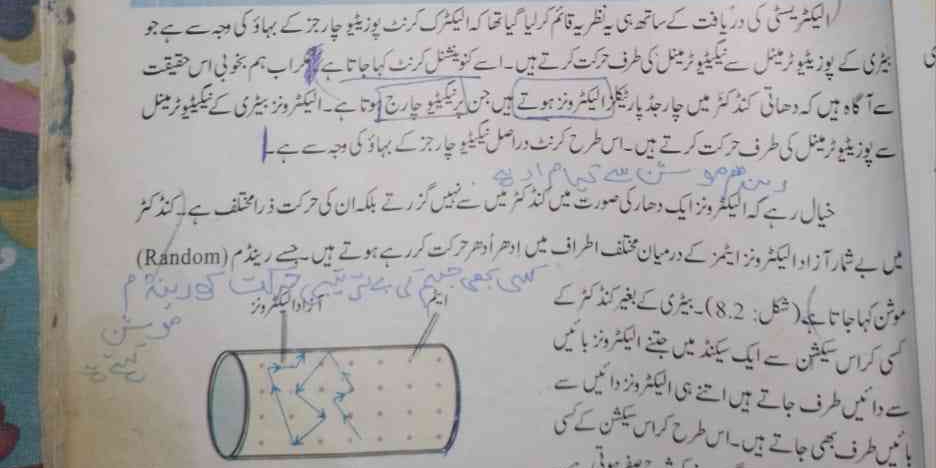 الیکٹریسٹی کی دریافت کے ساتھ ہی یہ نظریہ قائم کر لیا گیا تھا کہ الیکٹرک کرنٹ پوزیٹیو چارجز کے بہاؤ کی وجہ سے ہے جو
بیٹری کے پوزیٹیو ٹرمینل سے نیگیٹیو ٹرمینل کی طرف حرکت کرتے ہیں۔ اسے کنونشنل کرنٹ کہا جاتا ہے۔ مگر اب ہم بخوبی اس حقیقت
سے آگاہ ہیں کہ دھاتی کنڈکٹر میں چارجڈ پارٹیکلز الیکٹرونز ہوتے ہیں جن پر نیگیٹیو چارج ہوتا ہے۔ الیکٹرونز بیٹری کے نیگیٹیو ٹرمینل
سے پوزیٹیو ٹرمینل کی طرف حرکت کرتے ہیں۔ اس طرح کرنٹ دراصل نیگیٹیو چارجز کے بہاؤ کی وجہ سے ہے۔
رینڈم موشن سے کیا مراد ہے
خیال رہے کہ الیکٹرونز ایک دھار کی صورت میں کنڈکٹر میں سے نہیں گزرتے بلکہ ان کی حرکت ذرا مختلف ہے۔ کنڈکٹر
میں بے شمار آزاد الیکٹرونز ایٹمز کے درمیان مختلف اطراف میں اِدھر اُدھر حرکت کر رہے ہوتے ہیں۔ جسے رینڈم (Random)
کسی بھی جسم کی بے ترتیبی حرکت کو رینڈم
موشن کہتے ہیں
موشن کہا جاتا ہے (شکل: 8.2)۔ بیٹری کے بغیر کنڈکٹر کے
آزاد الیکٹرونز
ایٹم
کسی کراس سیکشن سے ایک سیکنڈ میں جتنے الیکٹرونز بائیں
سے دائیں طرف جاتے ہیں اتنے ہی الیکٹرونز دائیں سے
بائیں طرف بھی جاتے ہیں۔ اس طرح کراس سیکشن کے کسی